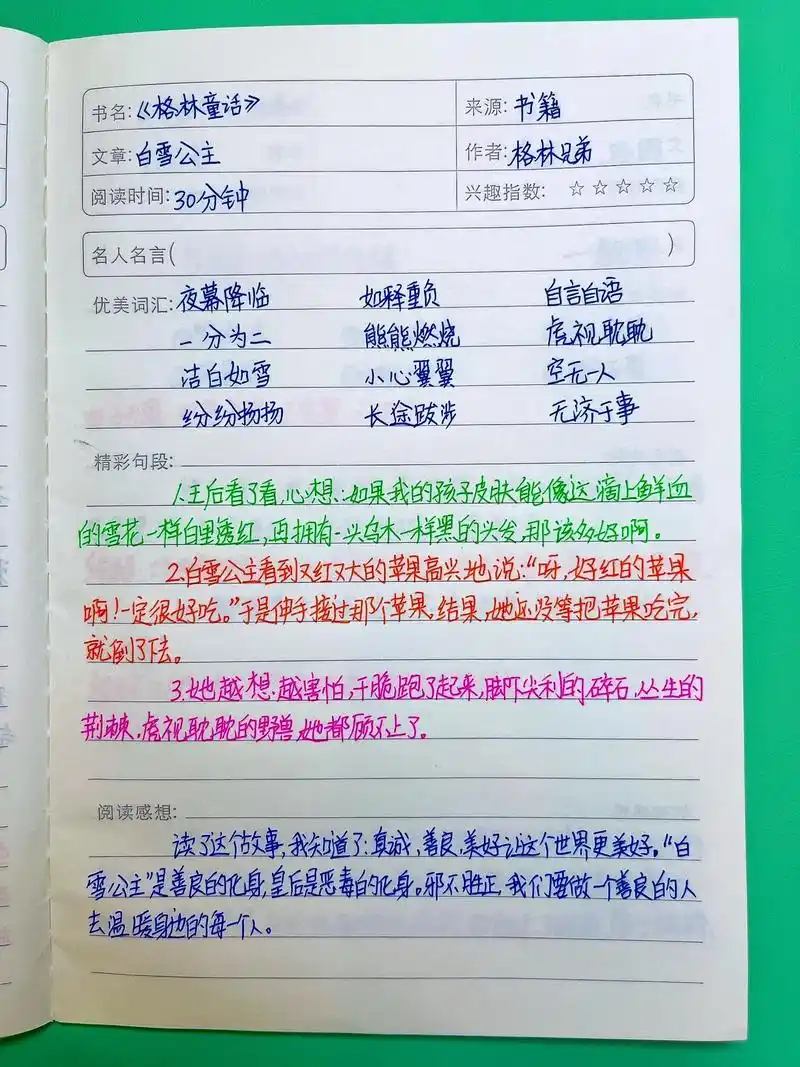 书名:《格林童话》 来源:书籍
文章:白雪公主 作者:格林兄弟
阅读时间:30分钟 兴趣指数:☆☆☆☆☆
名人名言( )
优美词汇:夜幕降临 如释重负 自言自语
一分为二 熊熊燃烧 虎视耽耽
洁白如雪 小心翼翼 空无一人
纷纷扬扬 长途跋涉 无济于事
精彩句段:
1.王后看了看,心想:如果我的孩子皮肤能像这滴上鲜血
的雪花一样白里透红,再拥有一头乌木一样黑的头发,那该多好啊。
2.白雪公主看到又红又大的苹果高兴地说:“呀,好红的苹果
啊!一定很好吃。”于是伸手接过那个苹果,结果,她还没等把苹果吃完,
就倒了下去。
3.她越想越害怕,干脆跑了起来,脚下尖利的碎石,丛生的
荆棘,虎视耽耽的野兽,她都顾不上了。
阅读感想:
读了这个故事,我知道了:真诚,善良,美好让这个世界更美好。“白
雪公主”是善良的化身,皇后是恶毒的化身。邪不胜正,我们要做一个善良的人
去温暖身边的每一个人。